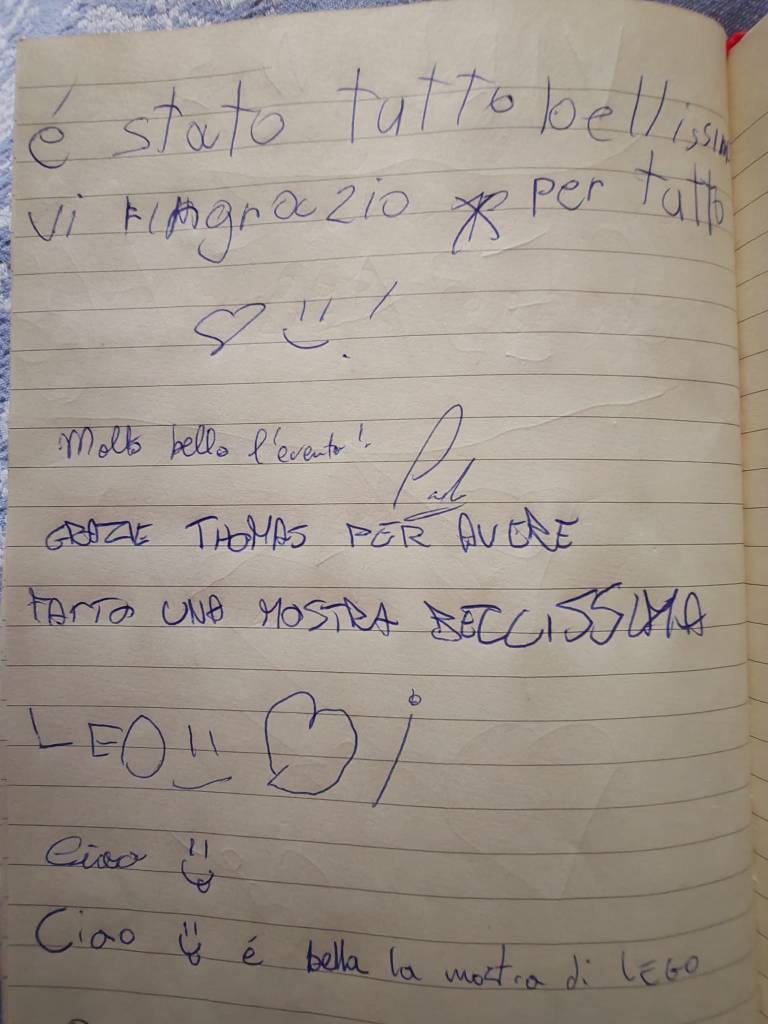 é stato tutto bellissim
vi ringrazio per tutto
Molto bello l'evento!
GRAZIE THOMAS PER AVERE
FATTO UNA MOSTRA BELLISSIMA
LEO
Ciao
Ciao é bella la mostra di LEGO